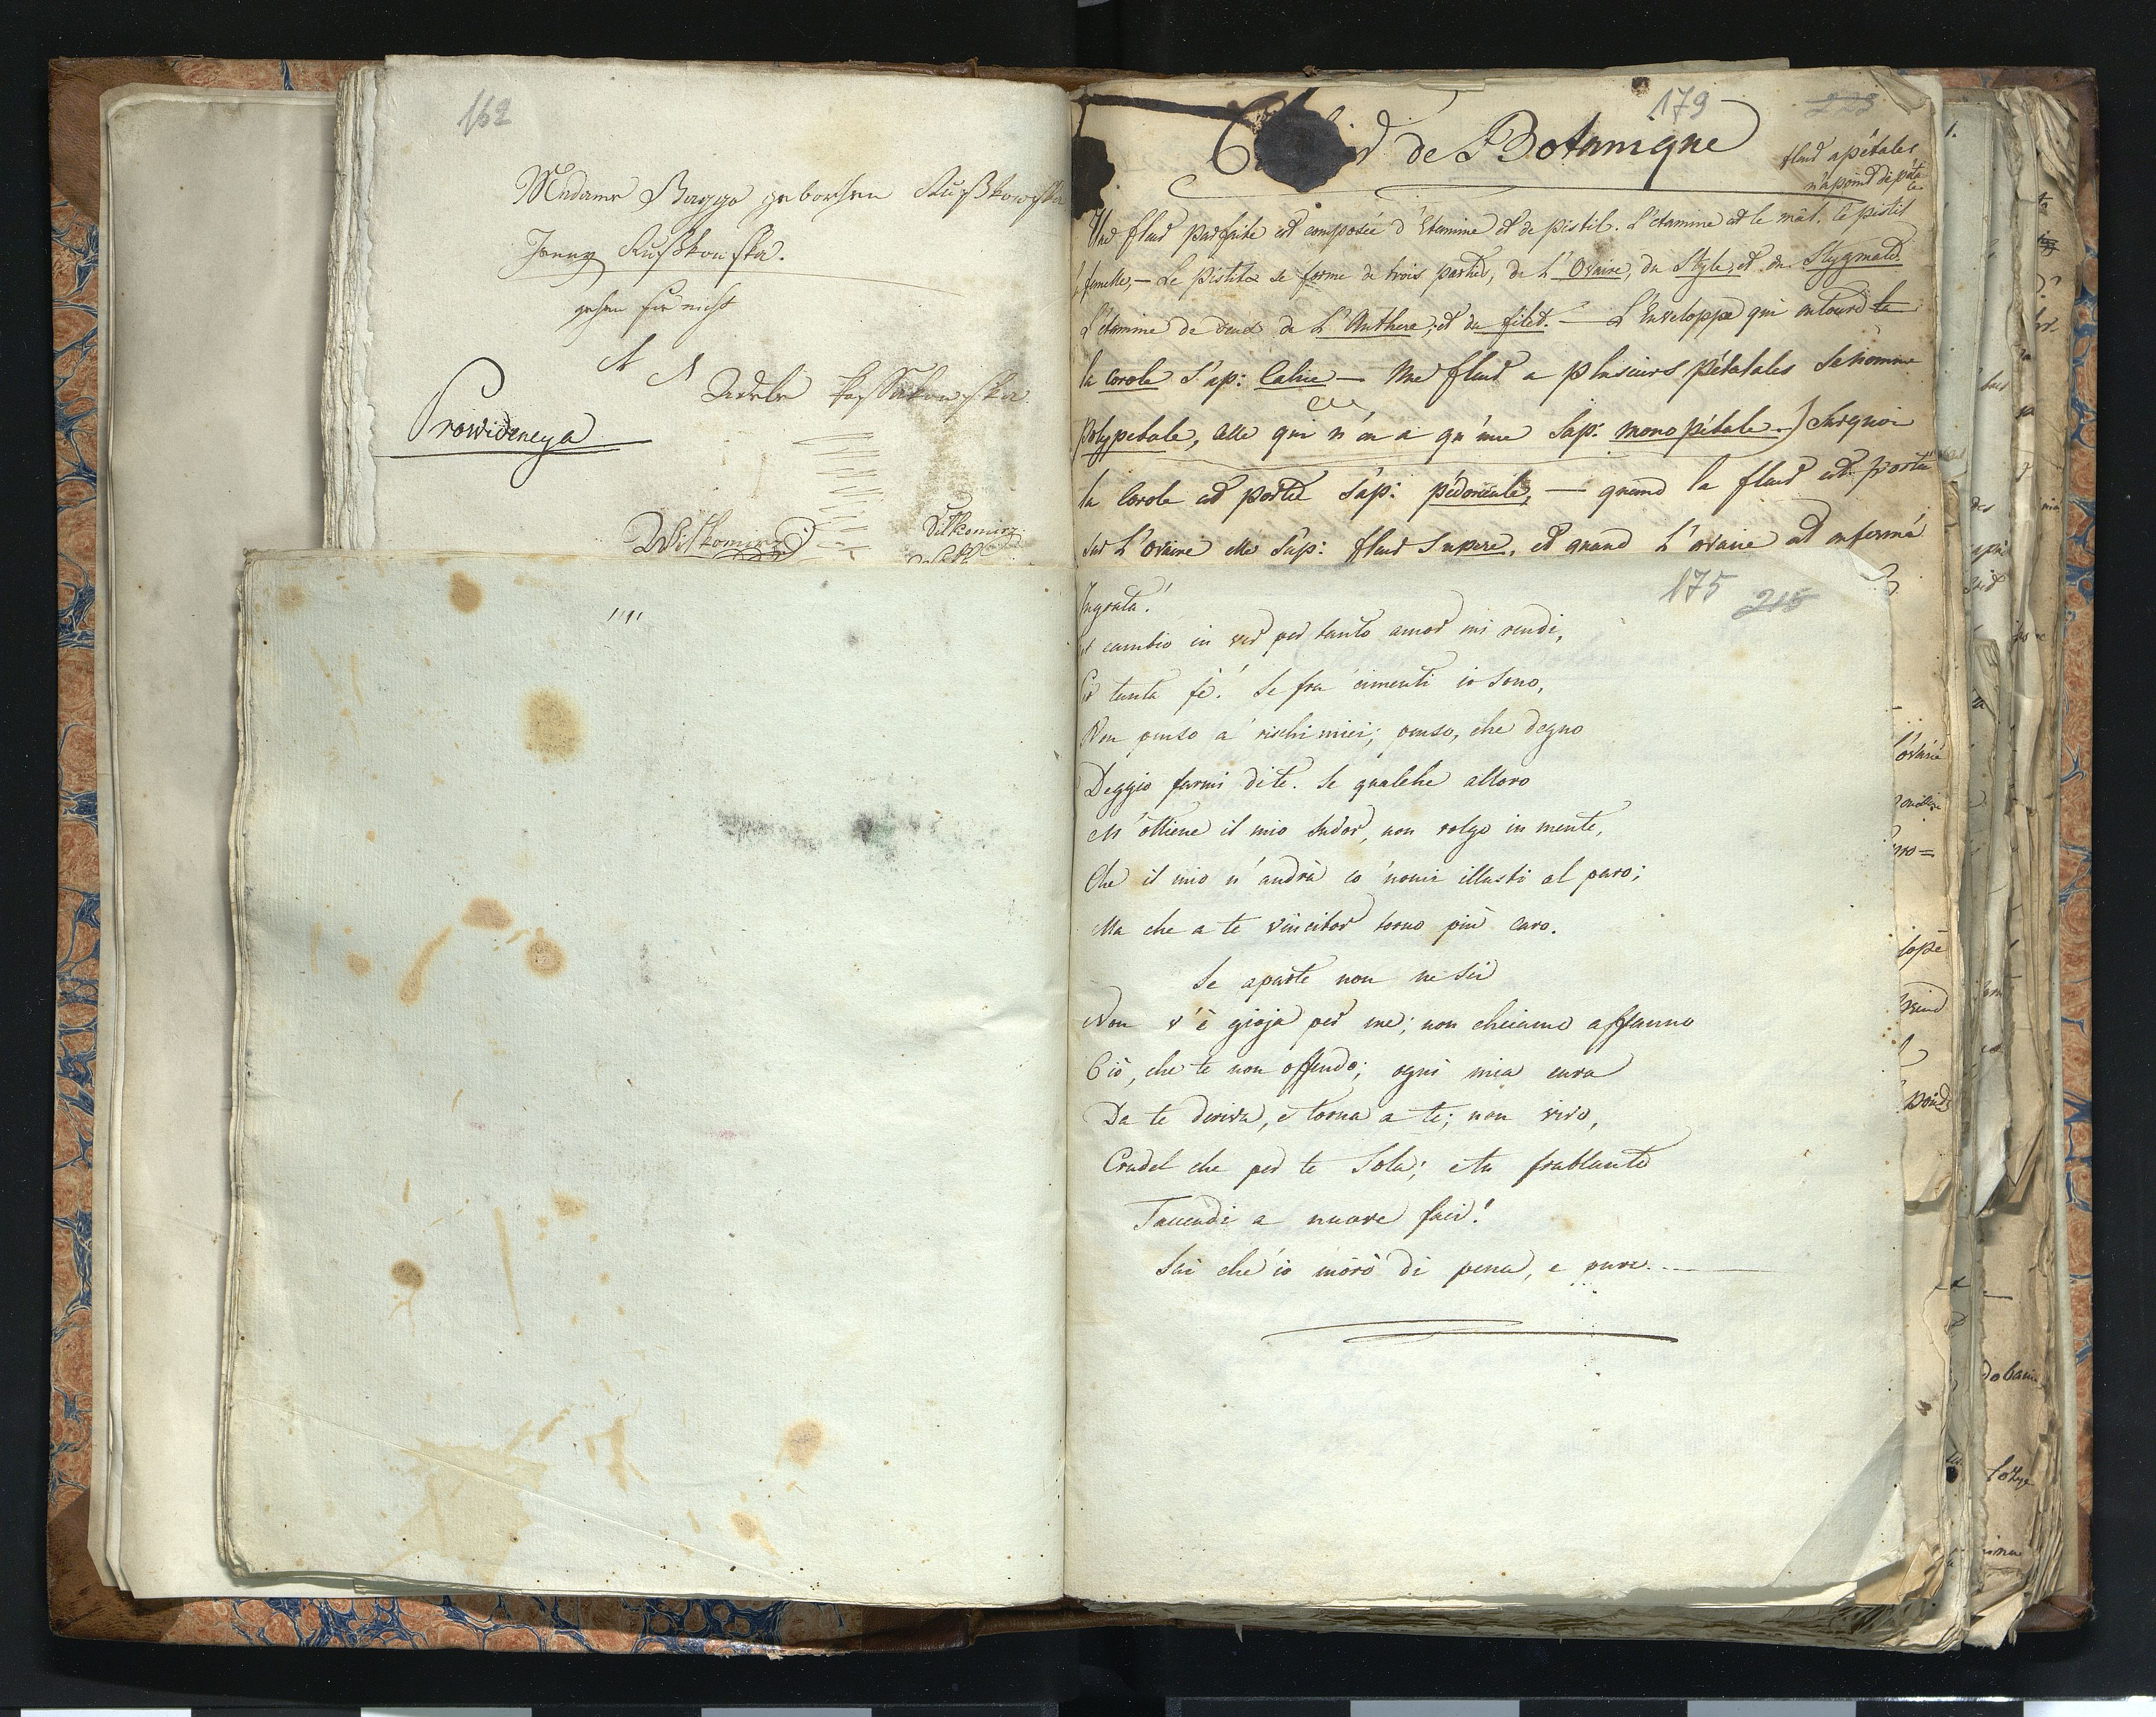 162
Madame Bagge geborhen Rußkowska
Jenny Rußkowska.
gehen sie nicht
A A Adele Kossakowska
Prowidencya
Wilkomirz
Wilkomirz
179
223
de Botanique
fleur apétales
n'a point de péta
les
Une fleur parfaite est composée d'Etamine et de pistil. L'étamine est le mâl. le pistil
femelle, — Le pistile se forme de trois parties, de L'Ovaire, du Style, et du Stygmate.
L'étamine de deux de L'Anthere, et du filet. — L'Enveloppe qui entoure le
la corole S'ap: Calice — Une fleur a plusieurs pétatales se nomme
Polypetale, celle qui n'en a qu'une S'ap: monopétale.) Surquoi
la Corole est portée S'ap: pédoncule, — quand la fleur est portée
sur L'ovaire elle S'ap: fleur Supere, et quand L'ovaire est enfermé
175 215
Ingrata!
cambio in ver per tanto amor mi rendi,
Per tanta fè! Se fra cimenti io sono,
Non penso a' rischi miei; penso, che degno
Deggio farmi di te. Se qualche alloro
M'ottiene il mio sudor, non volgo in mente,
Che il mio n'andrà co' nomi illustri al paro;
Ma che a te vincitor torno più caro.
Se aparte non ne sei
Non v'è gioja per me; non chiamo affanno
Ciò, che te non offende; ogni mia cura
Da te deriva, e torna a te; non vivo,
Crudel che per te Sola; e tu frattante
T'accendi a nuove faci!
Sai ch'io moro di pena, e pure...
l'ovaire